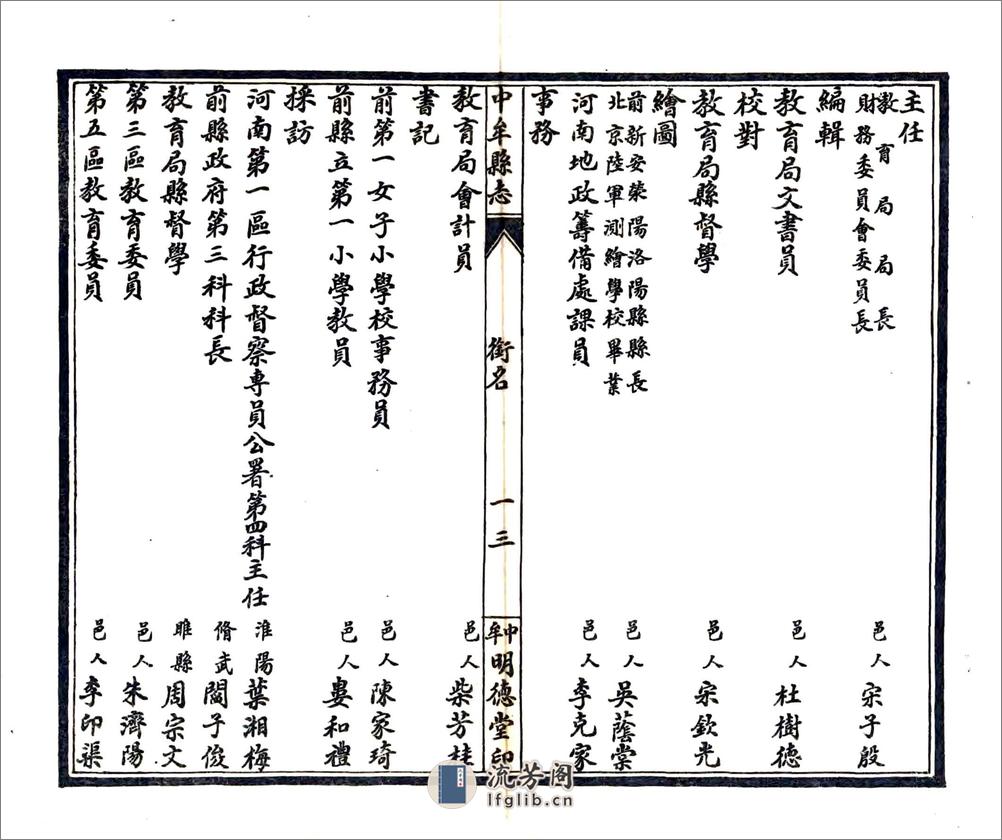 主任
教育局局長
財務委員會委員長　邑人宋子殷
編輯
教育局文書員　邑人杜樹德
校對
教育局縣督學　邑人宋欽光
繪圖
前新安滎陽洛陽縣縣長
北京陸軍測繪學校畢業　邑人吳蔭棠
河南地政籌備處課員　邑人李克家
事務
中牟縣志　銜名　一三　中牟明德堂印
教育局會計員　邑人柴芳桂
書記
前第一女子小學校事務員　邑人陳家琦
前縣立第一小學教員　邑人婁和禮
採訪
河南第一區行政督察專員公署第四科主任　淮陽葉湘梅
前縣政府第三科科長　脩武閻子俊
教育局縣督學　睢縣周宗文
第三區教育委員　邑人朱濟陽
第五區教育委員　邑人李印渠
流芳阁
lfglib.cn